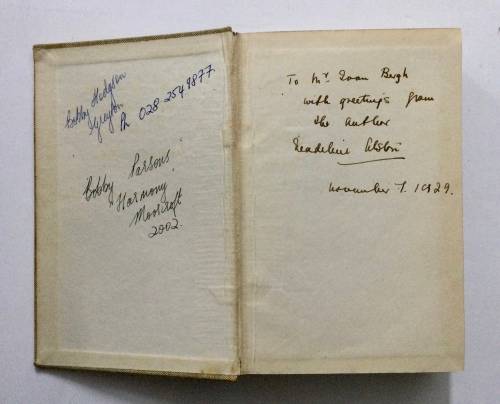 Bobby Hodgson
Greyton
Ph 028-2549877
Bobby Parsons
Harmony
Moorcroft
2002.
To Mr Ivan Bergh
with greetings from
the author
Madeline Alston
November 7. 1929.